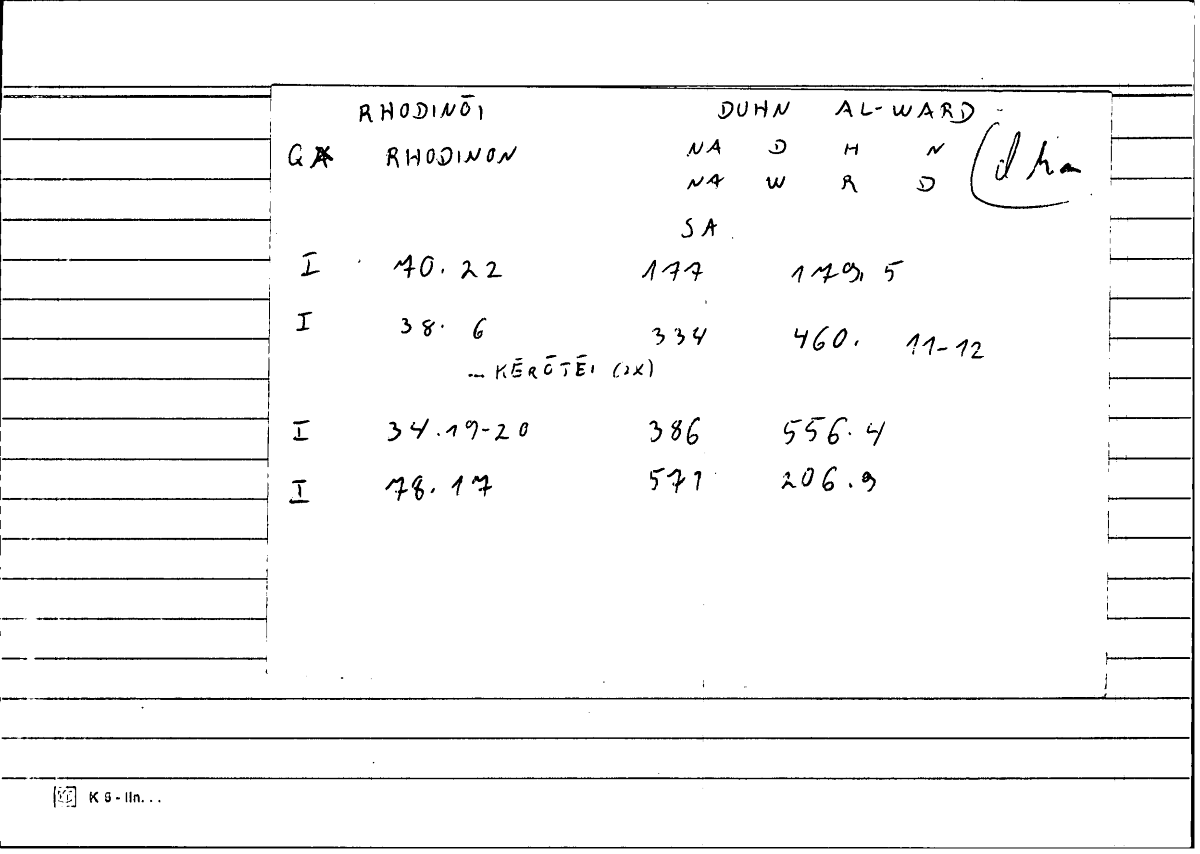 RHODINŌI DUHN AL-WARD
GA RHODINON NA D H N
NA W R D
SA
I 70.22 177 179.5
I 38.6 334 460. 11-12
... KĒRŌTĒI (2X)
I 34.19-20 386 556.4
I 78.17 571 206.9
K 6 - lln...